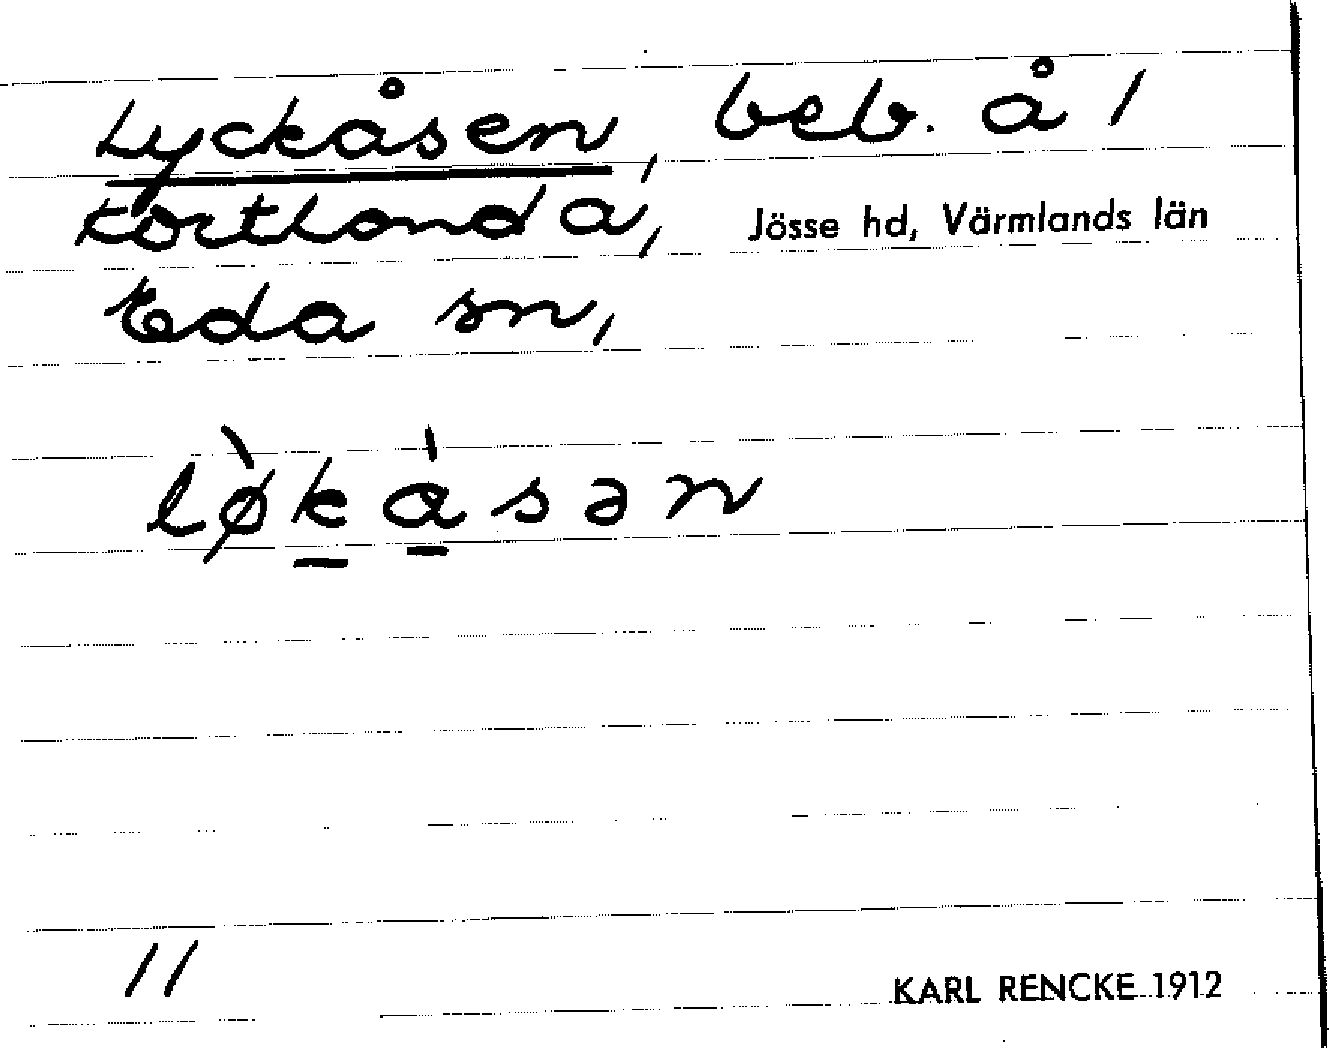 Lyckåsen, beb. å 1
Körtlanda, Jösse hd, Värmlands län
Eda sn,
lø̀kàsən
11
KARL RENCKE 1912